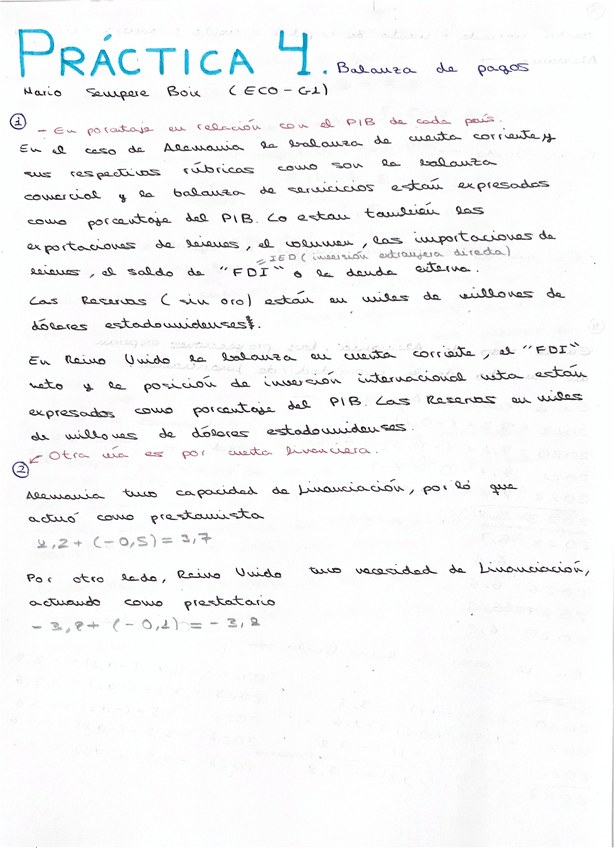 PRÁCTICA 4. Balanza de pagos
Mario Sempere Boix (ECO-G1)
① - En porcentaje en relación con el PIB de cada país.
En el caso de Alemania la balanza de cuenta corriente y
sus respectivas rúbricas como son la balanza
comercial y la balanza de servicicios están expresadas
como porcentaje del PIB. Lo estan también las
exportaciones de bienes, el volumen, las importaciones de
= IED (inversión extranjera directa)
bienes, el saldo de "FDI" o la deuda externa.
Las Reservas (sin oro) están en miles de millones de
dólares estadounidenses.
En Reino Unido la balanza en cuenta corriente, el "FDI"
neto y la posición de inversión internacional neta están
expresados como porcentaje del PIB. Las Reservas en miles
de millones de dólares estadounidenses.
② Otra vía es por cuenta financiera.
Alemania tuvo capacidad de financiación, por lo que
actuó como prestamista
4,2 + (-0,5) = 3,7
Por otro lado, Reino Unido tuvo necesidad de financiación,
actuando como prestatario
+ (-0,1) =